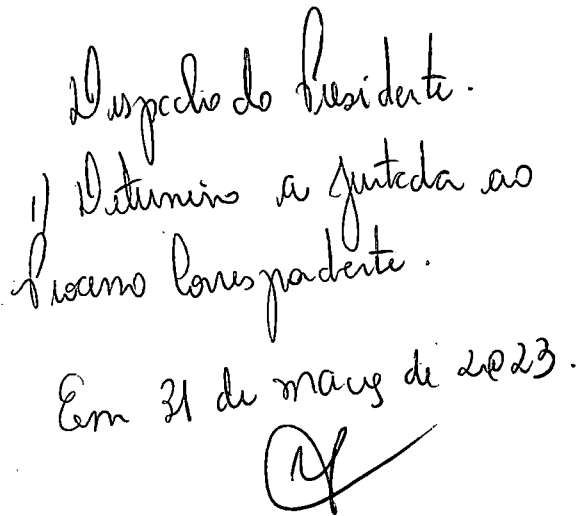 Despacho do Presidente.
1) Determino a juntada ao
Processo Correspondente.
Em 31 de março de 2023.